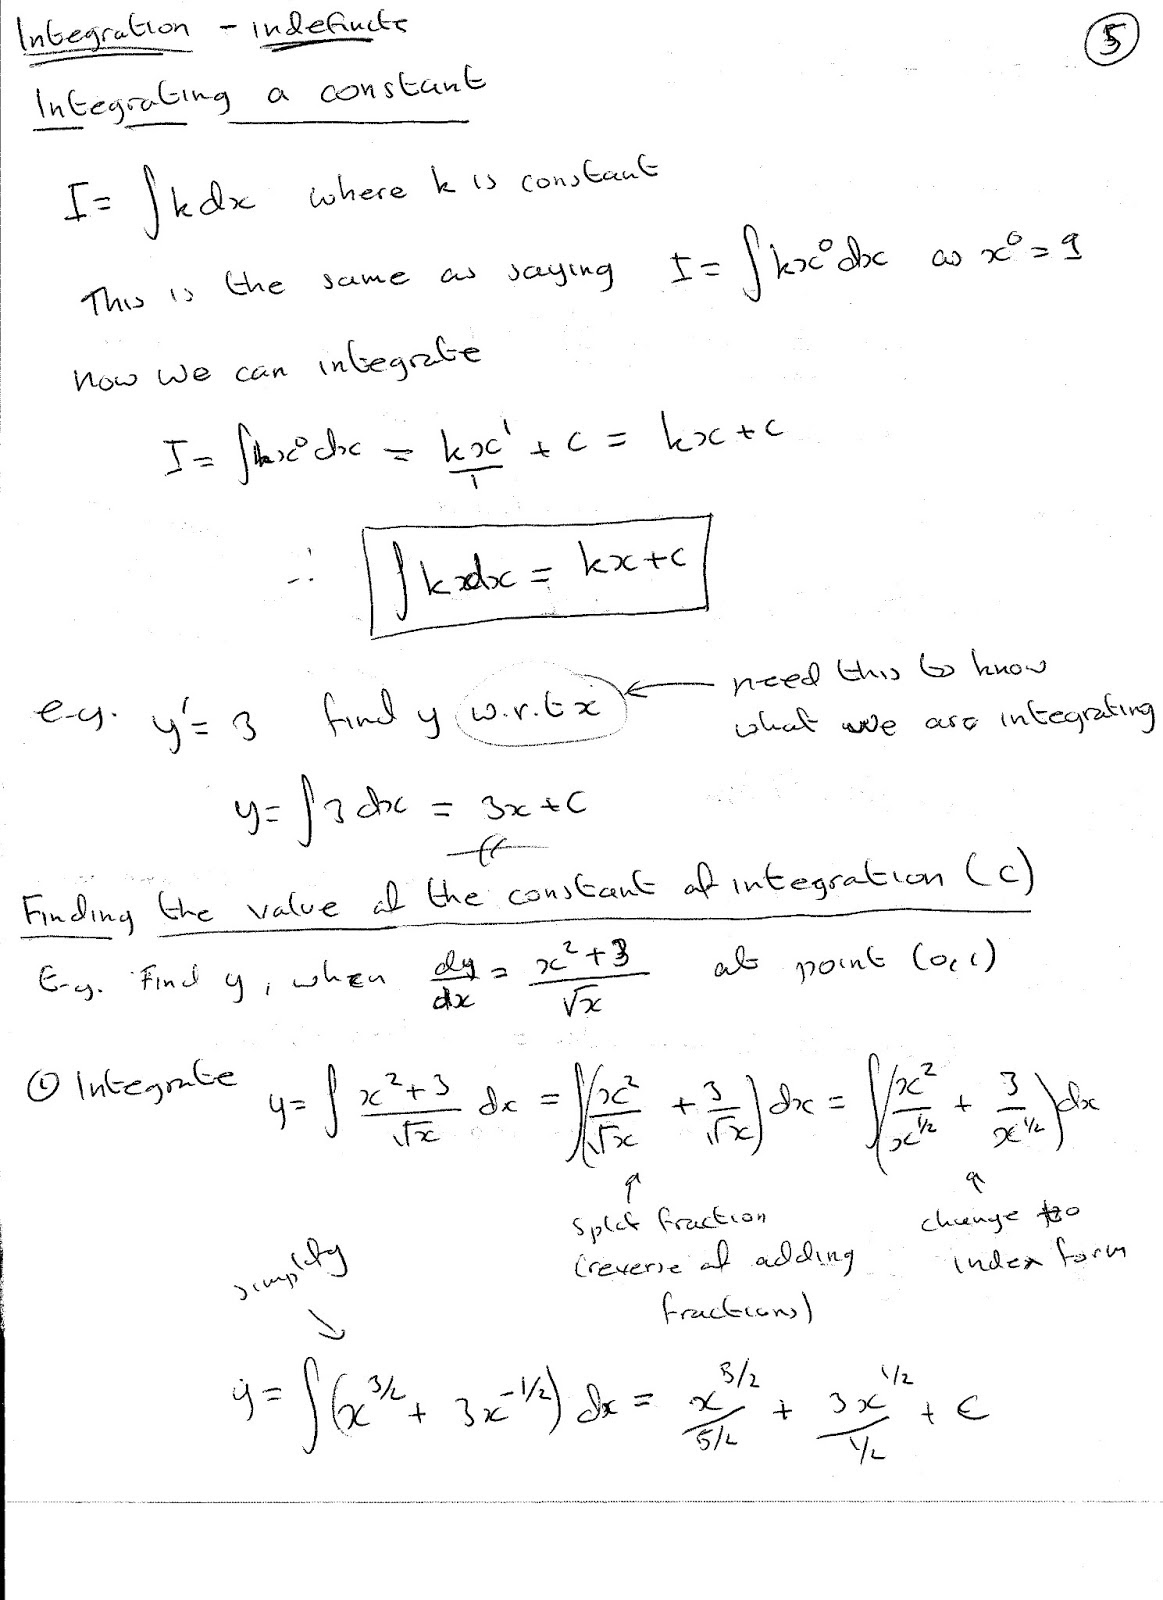 Integration - indefinite
⑤
Integrating a constant
I = ∫k dx where k is constant
This is the same as saying I = ∫kx⁰dx as x⁰ = 1
Now we can integrate
I = ∫kx⁰dx = kx¹/1 + c = kx + c
∴ ∫k dx = kx + c
e.g. y' = 3 find y w.r.t x ← need this to know
what we are integrating
y = ∫3 dx = 3x + c
Finding the value of the constant of integration (c)
E.g. Find y, when dy/dx = (x² + 3)/√x at point (0,1)
① Integrate y = ∫(x² + 3)/√x dx = ∫(x²/√x + 3/√x)dx = ∫(x²/x^(1/2) + 3/x^(1/2))dx
↑ split fraction
(reverse of adding
fractions)
↑ change to
index form
simplify ↓
y = ∫(x^(3/2) + 3x^(-1/2)) dx = x^(5/2)/(5/2) + 3x^(1/2)/(1/2) + c